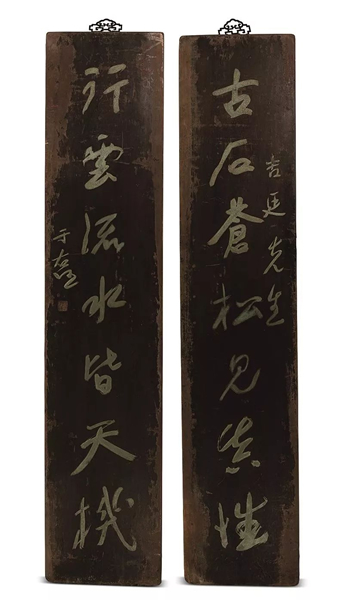 古石蒼松見真性
吉廷先生
行雲流水皆天機
于右任